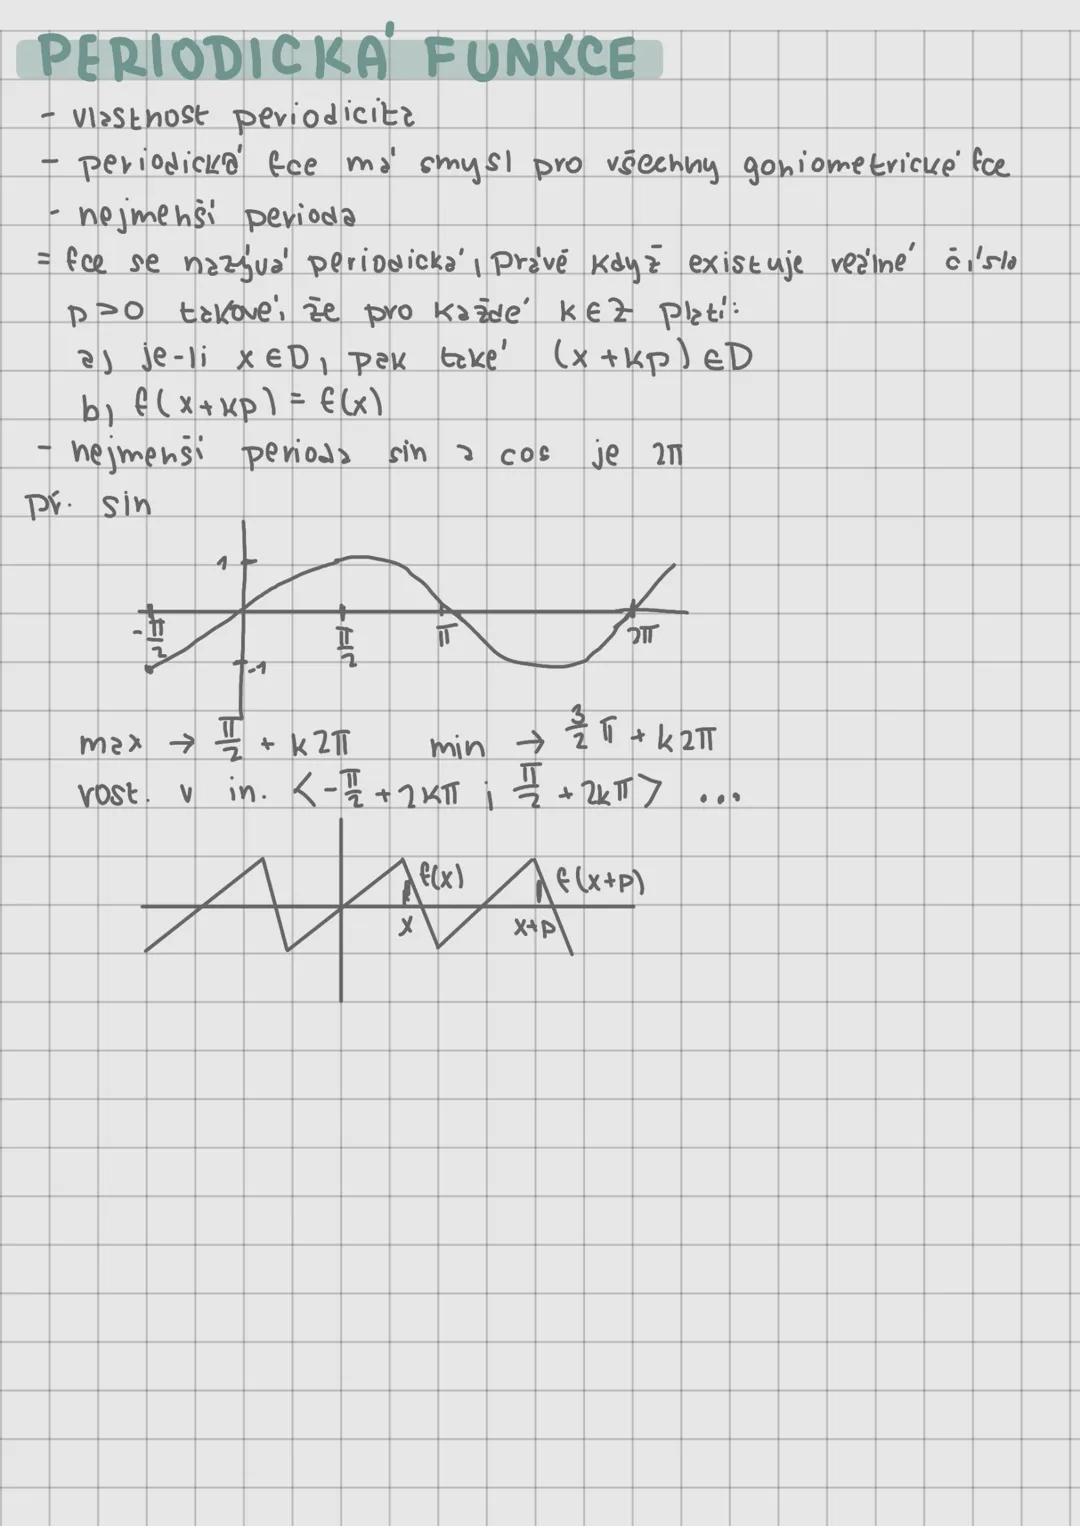 PERIODICKÁ FUNKCE
- vlastnost periodicita
- periodická fce má smysl pro všechny goniometrické fce
- nejmenší perioda
= fce se nazývá periodická, právě když existuje reálné číslo
p>0 takové, že pro každé k∈Z platí:
a) je-li x∈D, pak také (x+kp)∈D
b) f(x+kp) = f(x)
- nejmenší perioda sin a cos je 2π
př. sin
1
-π/2 π/2 π 2π
-1
max → π/2 + k2π min → 3/2 π + k2π
rost. v in. <-π/2 + 2kπ ; π/2 + 2kπ> ...
f(x) f(x+p)
x x+p